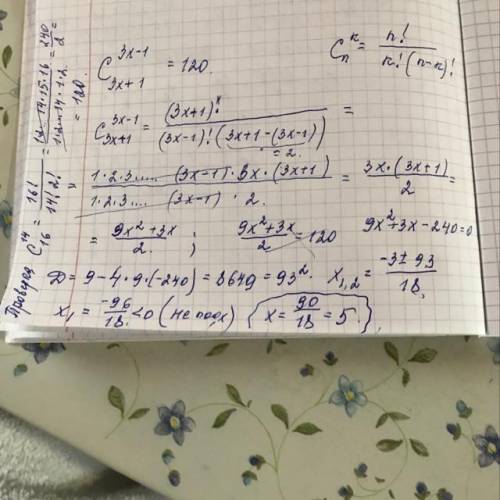 C_{3x+1}^{3x-1} = 120.
C_n^k = n! / k!(n-k)!
C_{3x+1}^{3x-1} = (3x+1)! / (3x-1)!(3x+1-(3x-1)) =
= 2.
1·2·3.... (3x-1)·3x·(3x+1) / 1·2·3.... (3x-1)·2. = 3x·(3x+1) / 2 =
= 9x²+3x / 2. ; 9x²+3x / 2 = 120 9x²+3x-240=0
D = 9-4·9·(-240) = 8649 = 93². x_{1,2} = -3±93 / 18.
x_1 = -96 / 18. < 0 (не подх) x = 90 / 18 = 5.
Проверка C_{16}^{14} = 16! / 14!2! = 1·2...14·15·16 / 1·2...14·1·2. = 240 / 2 =
= 120.